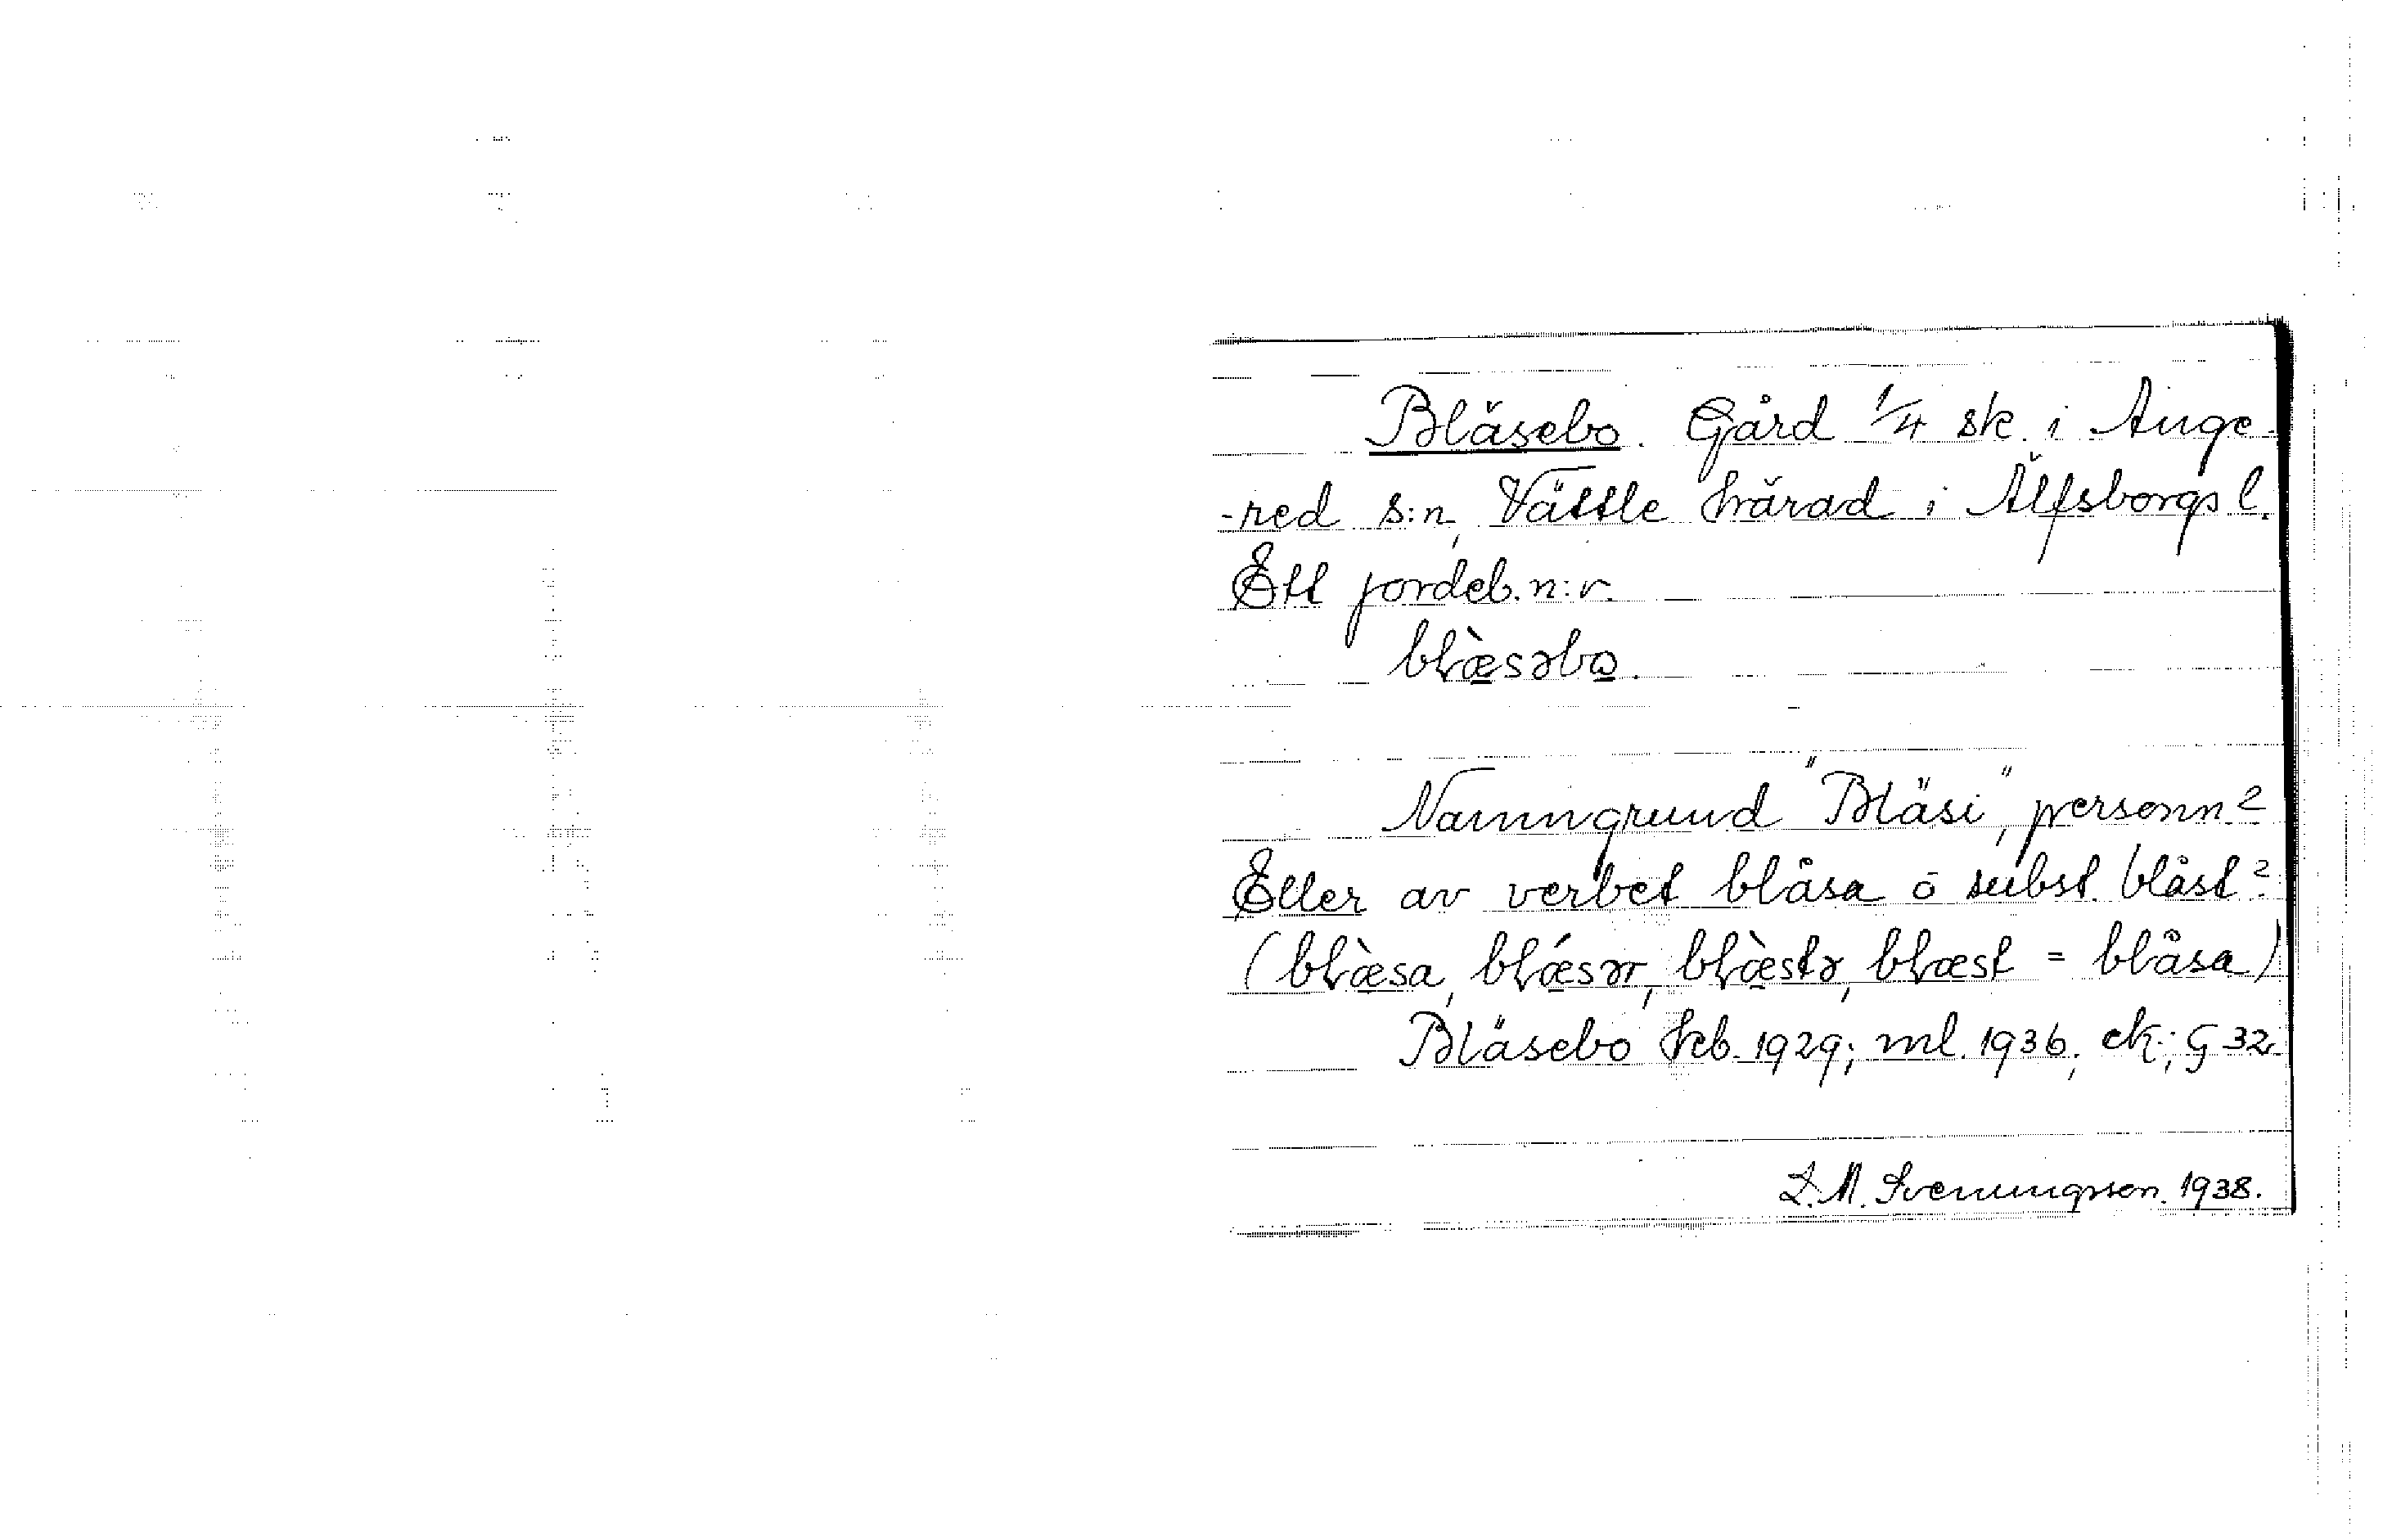 Bläsebo. Gård 1/4 sk. i Ange-
-red s:n, Vättle härad i Älfsborgs l.
Ett jordeb. n:r.
blæ̀səbo.
Namngrund "Bläsi", personn?
Eller av verbet blåsa o subst. blåst?
(blæ̀sa, blǽsər, blæ̀stə, blæst = blåsa)
Bläsebo kb. 1929; ml. 1936, ek; G 32
L.M. Svenungsson. 1938.